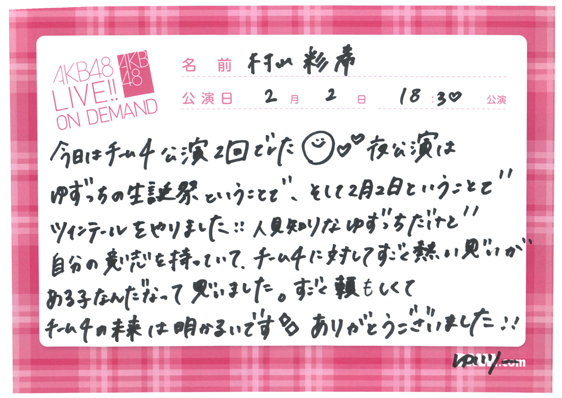 AKB48
LIVE!!
ON DEMAND
AKB
48
名前 村山彩希
公演日 2月2日 18:30 公演
今日はチーム4公演2回でした♡♡ 夜公演は
ゆずっちの生誕祭ということで、そして2月2日ということで
ツインテールをやりました!! 人見知りなゆずっちだけど
自分の意志を持っていて、チーム4に対してすごく熱い思いが
ある子なんだなって思いました。すごく頼もしくて
チーム4の未来は明かるいです ありがとうございました!!
.com